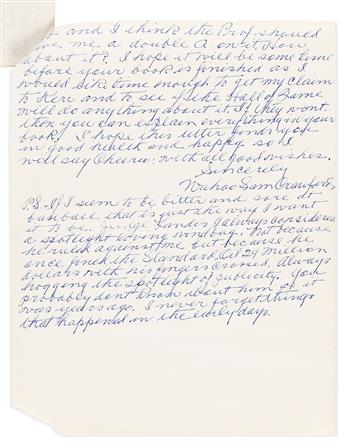 and I think the Prof. should
give me a double A on it. How
about it?. I hope it will be some time
before your book is finished as I
would like time enough to get my claim
to Kern and to see if the Hall of Fame
will do anything about it. If they wont
then you can explain everything in your
book. I hope this letter finds you
in good health and happy so I
will say Cheerio. with all good wishes.
Sincerely
Wahoo Sam Crawford,
PS If I seem to be bitter and sore at
baseball that is just the way I want
it to be. Judge Landis I always considered
a spotlight loving windbag. Not because
he ruled against me. but because he
once fined the Standard Oil 29 million
dollars with his fingers crossed. Always
hogging the spotlight of publicity. You
probably dont know about him as it
was years ago. I never forget things
that happened in the early days.